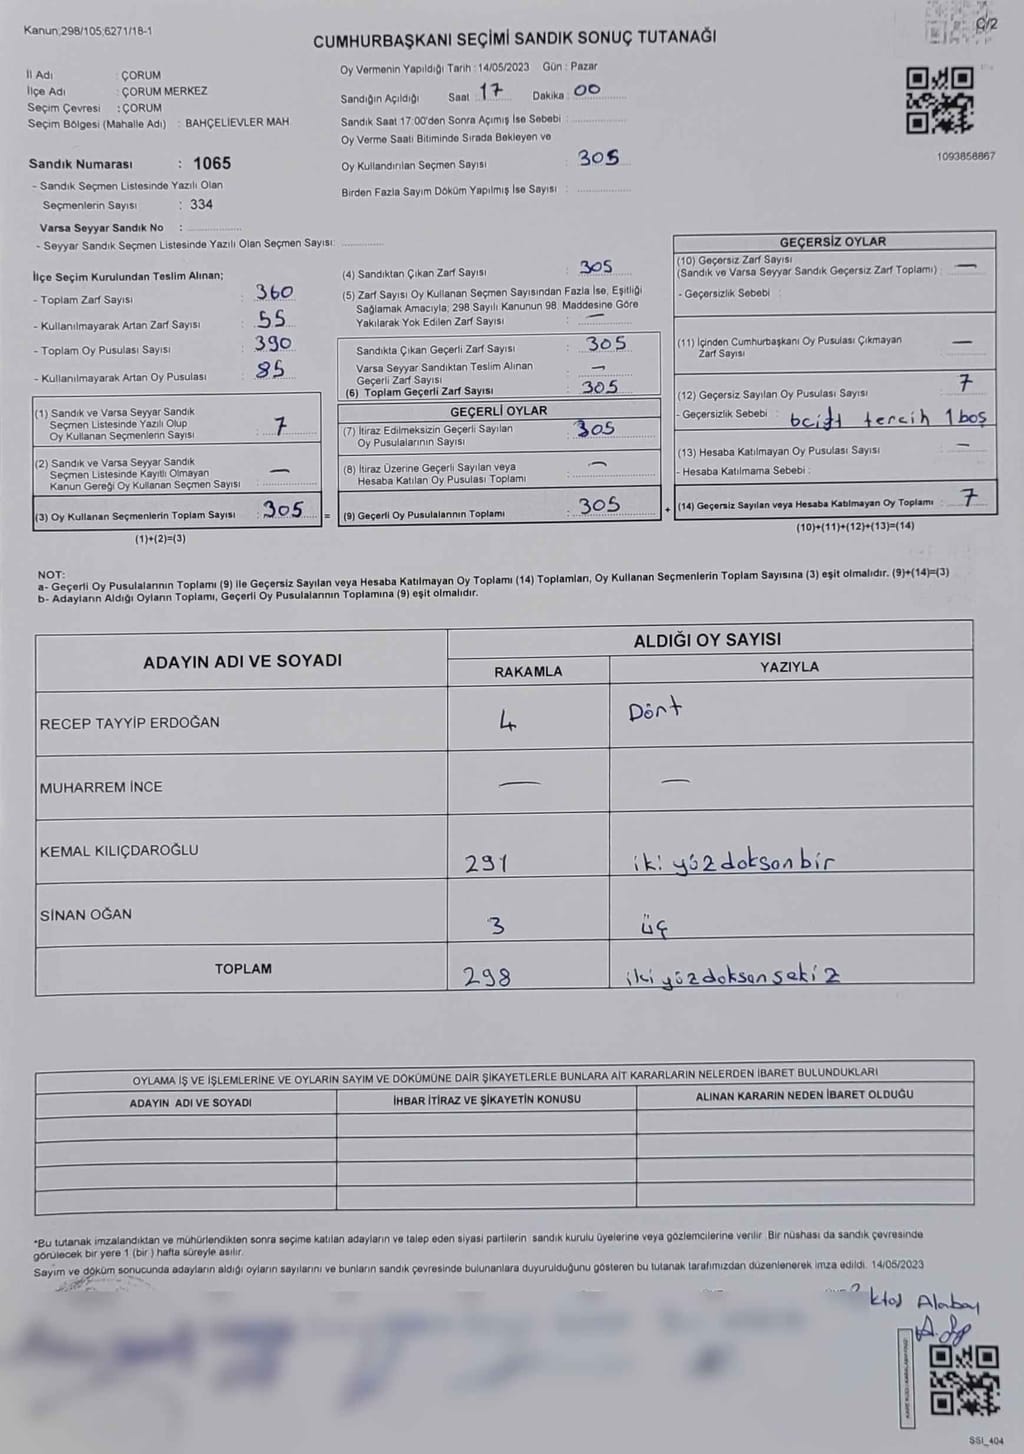 Kanun;298/105;6271/18-1
C/2
CUMHURBAŞKANI SEÇİMİ SANDIK SONUÇ TUTANAĞI
İl Adı : ÇORUM
İlçe Adı : ÇORUM MERKEZ
Seçim Çevresi : ÇORUM
Seçim Bölgesi (Mahalle Adı) : BAHÇELİEVLER MAH.
Oy Vermenin Yapıldığı Tarih : 14/05/2023 Gün : Pazar
Sandığın Açıldığı Saat 17 Dakika : 00
Sandık Saat 17:00'den Sonra Açımış İse Sebebi :
Oy Verme Saati Bitiminde Sırada Bekleyen ve
Oy Kullandırılan Seçmen Sayısı : 305
Birden Fazla Sayım Döküm Yapılmış İse Sayısı :
1093858867
Sandık Numarası : 1065
- Sandık Seçmen Listesinde Yazılı Olan
Seçmenlerin Sayısı : 334
Varsa Seyyar Sandık No :
- Seyyar Sandık Seçmen Listesinde Yazılı Olan Seçmen Sayısı:
İlçe Seçim Kurulundan Teslim Alınan;
- Toplam Zarf Sayısı : 360
- Kullanılmayarak Artan Zarf Sayısı : 55
- Toplam Oy Pusulası Sayısı : 390
- Kullanılmayarak Artan Oy Pusulası : 85
(1) Sandık ve Varsa Seyyar Sandık
Seçmen Listesinde Yazılı Olup
Oy Kullanan Seçmenlerin Sayısı : 7
(2) Sandık ve Varsa Seyyar Sandık
Seçmen Listesinde Kayıtlı Olmayan
Kanun Gereği Oy Kullanan Seçmen Sayısı : —
(3) Oy Kullanan Seçmenlerin Toplam Sayısı : 305 =
(1)+(2)=(3)
(4) Sandıktan Çıkan Zarf Sayısı : 305
(5) Zarf Sayısı Oy Kullanan Seçmen Sayısından Fazla İse, Eşitliği
Sağlamak Amacıyla, 298 Sayılı Kanunun 98. Maddesine Göre
Yakılarak Yok Edilen Zarf Sayısı : —
Sandıkta Çıkan Geçerli Zarf Sayısı : 305
Varsa Seyyar Sandıktan Teslim Alınan
Geçerli Zarf Sayısı : —
(6) Toplam Geçerli Zarf Sayısı : 305
GEÇERLİ OYLAR
(7) İtiraz Edilmeksizin Geçerli Sayılan
Oy Pusulalarının Sayısı : 305
(8) İtiraz Üzerine Geçerli Sayılan veya
Hesaba Katılan Oy Pusulası Toplamı : —
(9) Geçerli Oy Pusulalarının Toplamı : 305 +
GEÇERSİZ OYLAR
(10) Geçersiz Zarf Sayısı
(Sandık ve Varsa Seyyar Sandık Geçersiz Zarf Toplamı) : —
- Geçersizlik Sebebi :
(11) İçinden Cumhurbaşkanı Oy Pusulası Çıkmayan
Zarf Sayısı : —
(12) Geçersiz Sayılan Oy Pusulası Sayısı : 7
- Geçersizlik Sebebi : 6çift tercih 1boş
(13) Hesaba Katılmayan Oy Pusulası Sayısı : —
- Hesaba Katılmama Sebebi :
(14) Geçersiz Sayılan veya Hesaba Katılmayan Oy Toplamı : 7
(10)+(11)+(12)+(13)=(14)
NOT:
a- Geçerli Oy Pusulalarının Toplamı (9) ile Geçersiz Sayılan veya Hesaba Katılmayan Oy Toplamı (14) Toplamları, Oy Kullanan Seçmenlerin Toplam Sayısına (3) eşit olmalıdır. (9)+(14)=(3)
b- Adayların Aldığı Oyların Toplamı, Geçerli Oy Pusulalarının Toplamına (9) eşit olmalıdır.
ADAYIN ADI VE SOYADI
ALDIĞI OY SAYISI
RAKAMLA YAZIYLA
RECEP TAYYİP ERDOĞAN 4 Dört
MUHARREM İNCE — —
KEMAL KILIÇDAROĞLU 291 iki yüz doksan bir
SİNAN OĞAN 3 üç
TOPLAM 298 iki yüz doksan sekiz
OYLAMA İŞ VE İŞLEMLERİNE VE OYLARIN SAYIM VE DÖKÜMÜNE DAİR ŞİKAYETLERLE BUNLARA AİT KARARLARIN NELERDEN İBARET BULUNDUKLARI
ADAYIN ADI VE SOYADI İHBAR İTİRAZ VE ŞİKAYETİN KONUSU ALINAN KARARIN NEDEN İBARET OLDUĞU
*Bu tutanak imzalandıktan ve mühürlendikten sonra seçime katılan adayların ve talep eden siyasi partilerin sandık kurulu üyelerine veya gözlemcilerine verilir. Bir nüshası da sandık çevresinde
görülecek bir yere 1 (bir) hafta süreyle asılır.
Sayım ve döküm sonucunda adayların aldığı oyların sayılarını ve bunların sandık çevresinde bulunanlara duyurulduğunu gösteren bu tutanak tarafımızdan düzenlenerek imza edildi. 14/05/2023
SSI_404